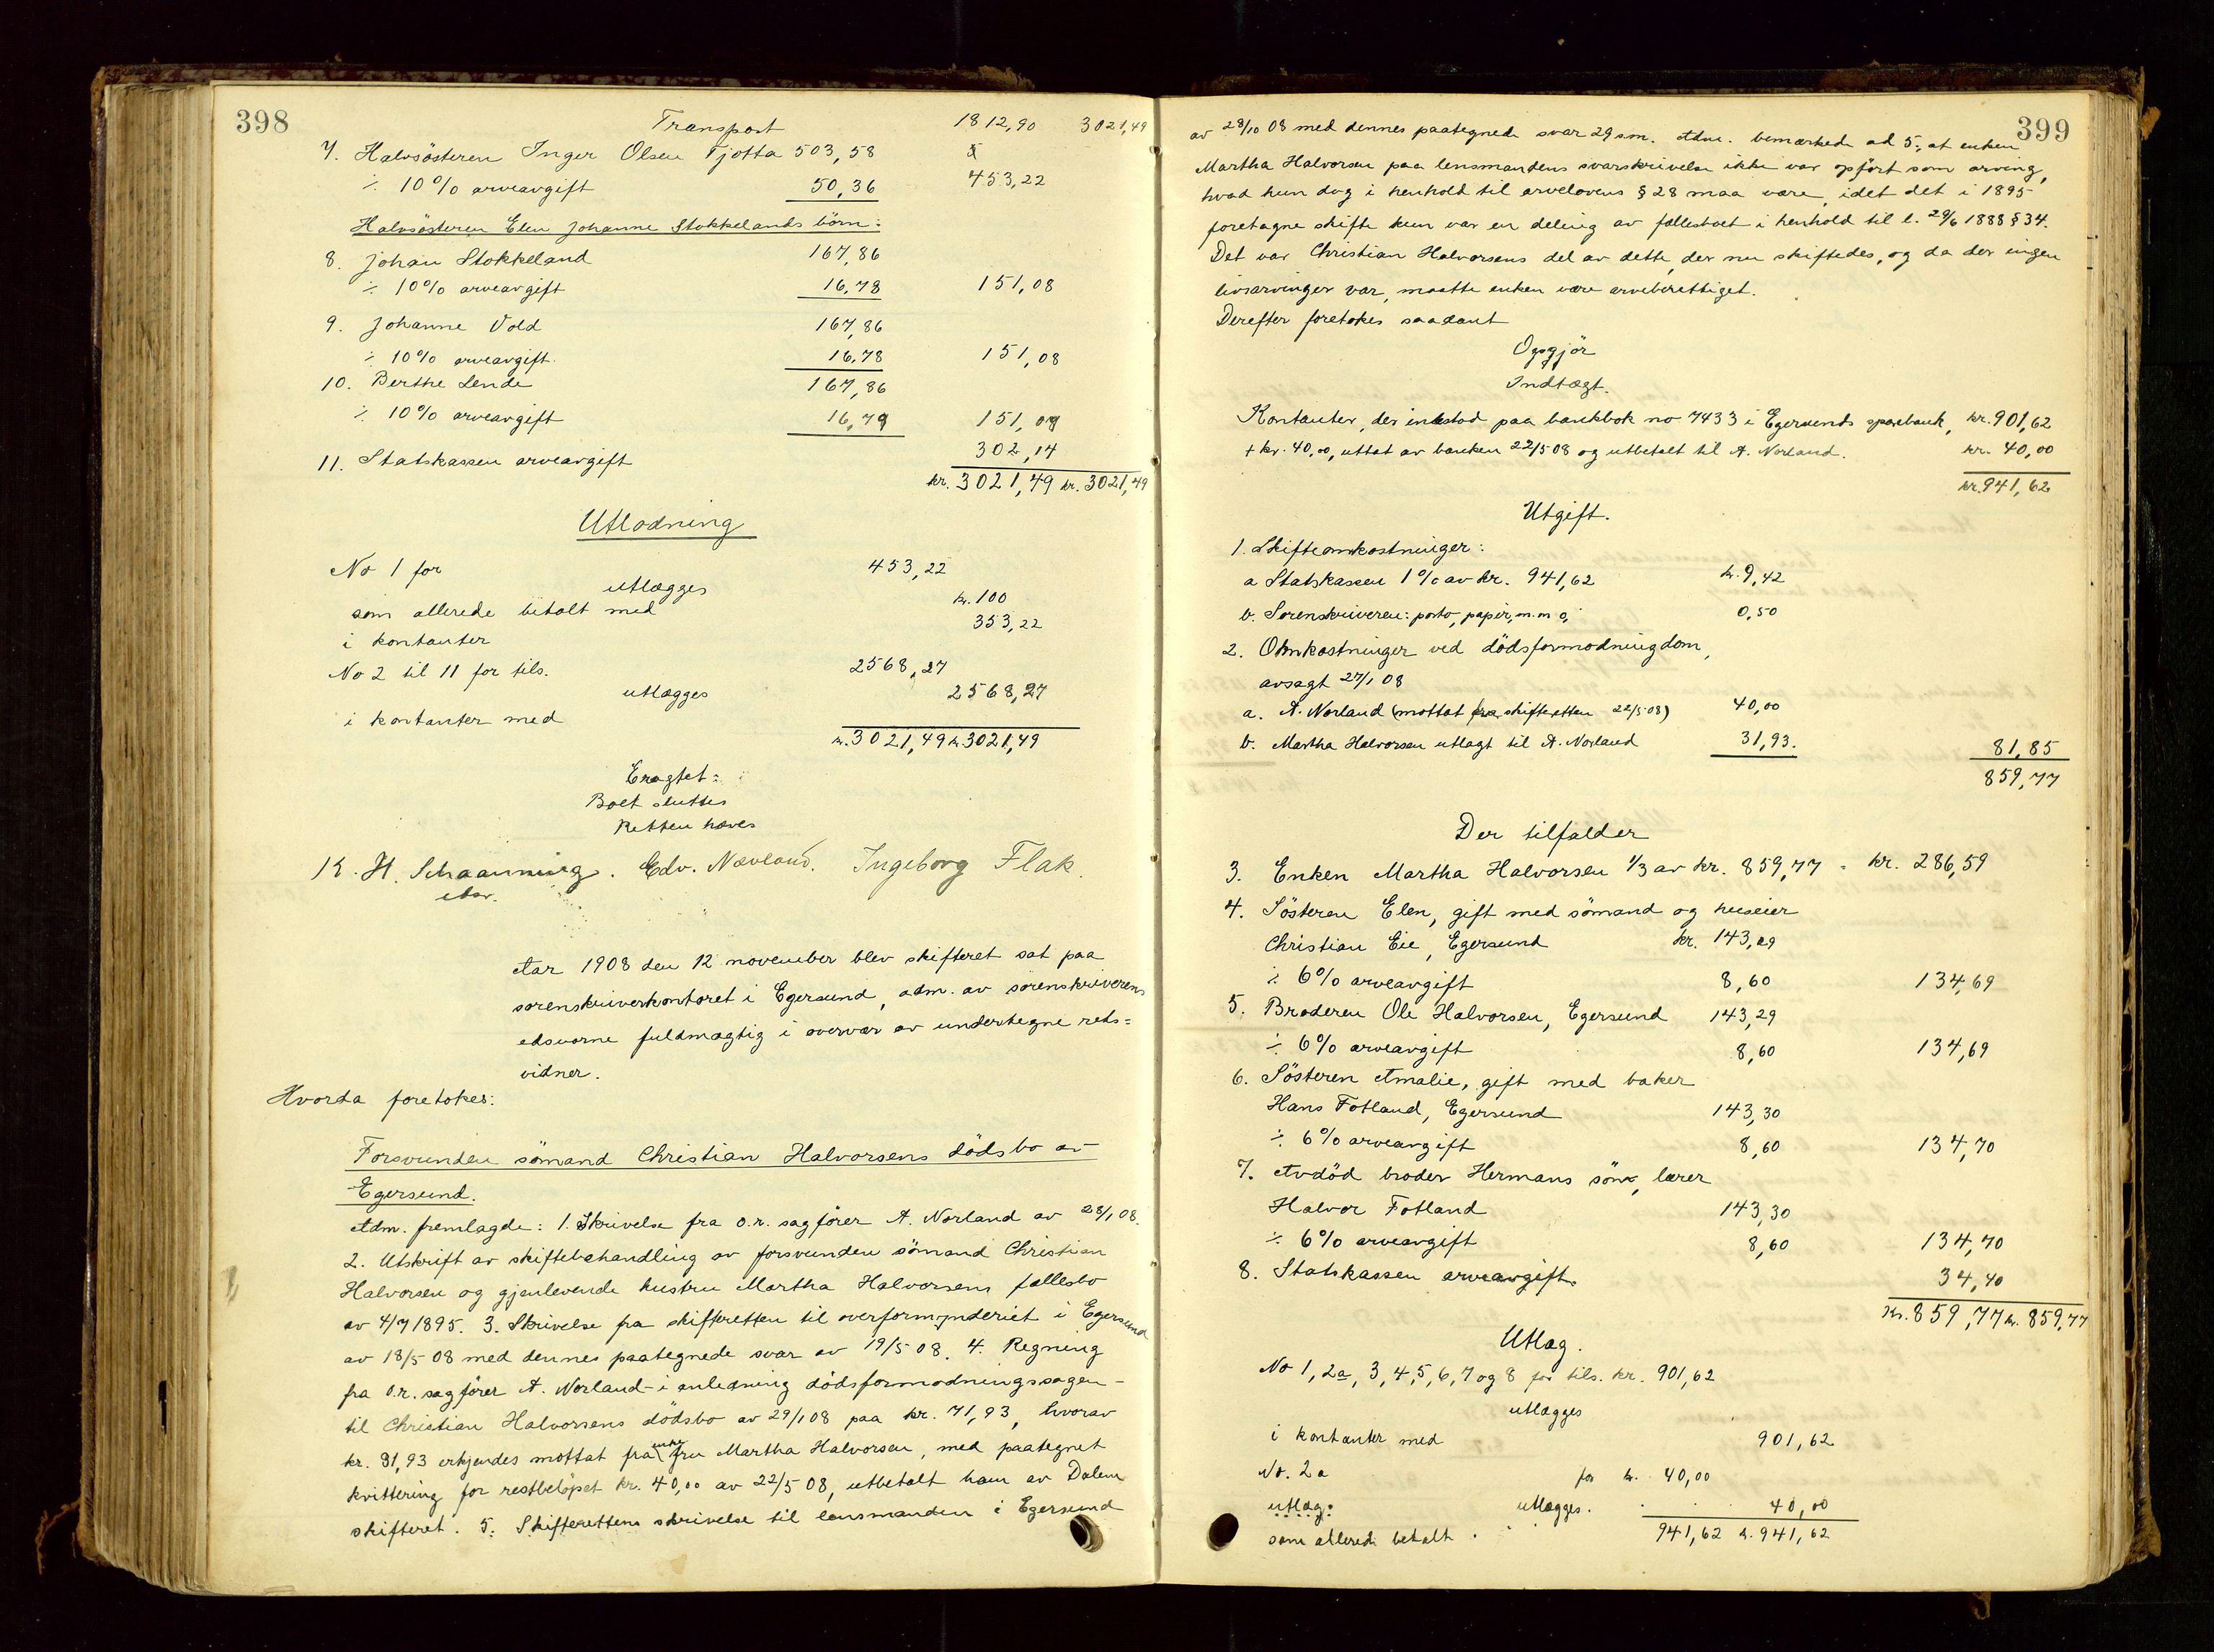 398
Transport 1812,90 3021,49
7. Halvsösteren Inger Olsen Tjotta 503,58
÷ 10% arveavgift 50,36 453,22
Halvsösteren Elen Johanne Stokkelands börn:
8. Johan Stokkeland 167,86
÷ 10% arveavgift 16,78 151,08
9. Johanne Vold 167,86
÷ 10% arveavgift. 16,78 151,08
10. Berthe Lende 167,86
÷ 10% arveavgift 16,79 151,07
11. Statskassen arveavgift 302,14
kr. 3021,49 kr. 3021,49
Utlodning
No 1 for 453,22
utlægges
som allerede betalt med kr. 100
i kontanter 353,22
No 2 til 11 for tils. 2568,27
utlægges
i kontanter med 2568,27
kr. 3021,49 kr. 3021,49
Eragtet:
Boet sluttes
Retten hæves
K. H. Schaanning. Edv. Nævland. Ingeborg Flak.
edsv.
Aar 1908 den 12 november blev skifteret sat paa
sorenskriverkontoret i Egersund, adm. av sorenskriverens
edsvorne fuldmægtig i overvær av undertegne rets=
vidner.
Hvorda foretokes:
Forsvunden sömand Christian Halvorsens dödsbo av
Egersund.
Adm. fremlagde: 1. Skrivelse fra o.r. sagförer A. Norland av 28/1 08.
2. Utskrift av skiftebehandling av forsvunden sömand Christian
Halvorsen og gjenlevende hustru Martha Halvorsens fællesbo
av 4/7 1895. 3. Skrivelse fra skifteretten til overformynderiet i Egersund
av 18/5 08 med dennes paategnede svar av 19/5 08. 4. Regning
fra o.r. sagförer A. Norland - i anledning dödsformodningssagen -
til Christian Halvorsens dödsbo av 29/1 08 paa kr. 71,93, hvorav
kr. 31,93 erkjendes mottat fra enke fru Martha Halvorsen, med paategnet
kvittering for restbelöpet kr. 40,00 av 22/5 08, utbetalt ham av Dalene
skifteret. 5. Skifterettens skrivelse til lensmanden i Egersund
399
av 28/10 08 med dennes paategnede svar 29 s.m. Adm. bemærkede ad 5, at enken
Martha Halvorsen paa lensmandens svarskrivelse ikke var opfört som arving,
hvad hun dog i henhold til arvelovens § 28 maa være, idet det i 1895
foretagne skifte kun var en deling av fællesboet i henhold til l. 29/6 1888 § 34.
Det var Christian Halvorsens del av dette, der nu skiftedes, og da der ingen
livsarvinger var, maatte enken være arveberettiget.
Derefter foretokes saadant
Opgjör
Indtægt.
Kontanter, der indestod paa bankbok no 7433 i Egersunds sparebank, kr. 901,62
+ kr. 40,00, uttat av banken 22/5 08 og utbetalt til A. Norland. kr. 40,00
kr. 941,62
Utgift.
1. Skifteomkostninger:
a Statskassen 1% av kr. 941,62 kr. 9,42
b. Sorenskriveren: porto, papir, m.m 0,50
2. Omkostninger ved dödsformodningdom,
avsagt 27/1 08
a. A. Norland (mottat fra skifteretten 22/5 08) 40,00
b. Martha Halvorsen utlagt til A. Norland 31,93. 81,85
859,77
Der tilfalder
3. Enken Martha Halvorsen 1/3 av kr. 859,77 = kr. 286,59
4. Sösteren Elen, gift med sömand og huseier
Christian Eie, Egersund kr. 143,29
÷ 6% arveavgift 8,60 134,69
5. Broderen Ole Halvorsen, Egersund 143,29
÷ 6% arveavgift 8,60 134,69
6. Sösteren Amalie, gift med baker
Hans Fotland, Egersund 143,30
÷ 6% arveavgift 8,60 134,70
7. Avdöd broder Hermans sön, lærer
Halvor Fotland 143,30
÷ 6% arveavgift 8,60 134,70
8. Statskassen arveavgift. 34,40
kr. 859,77 kr. 859,77
Utlæg.
No 1, 2a, 3, 4, 5, 6, 7 og 8 for tils. kr. 901,62
utlægges
i kontanter med 901,62
No. 2a for kr. 40,00
utlæg: utlægges. 40,00
som allerede betalt. 941,62 kr. 941,62